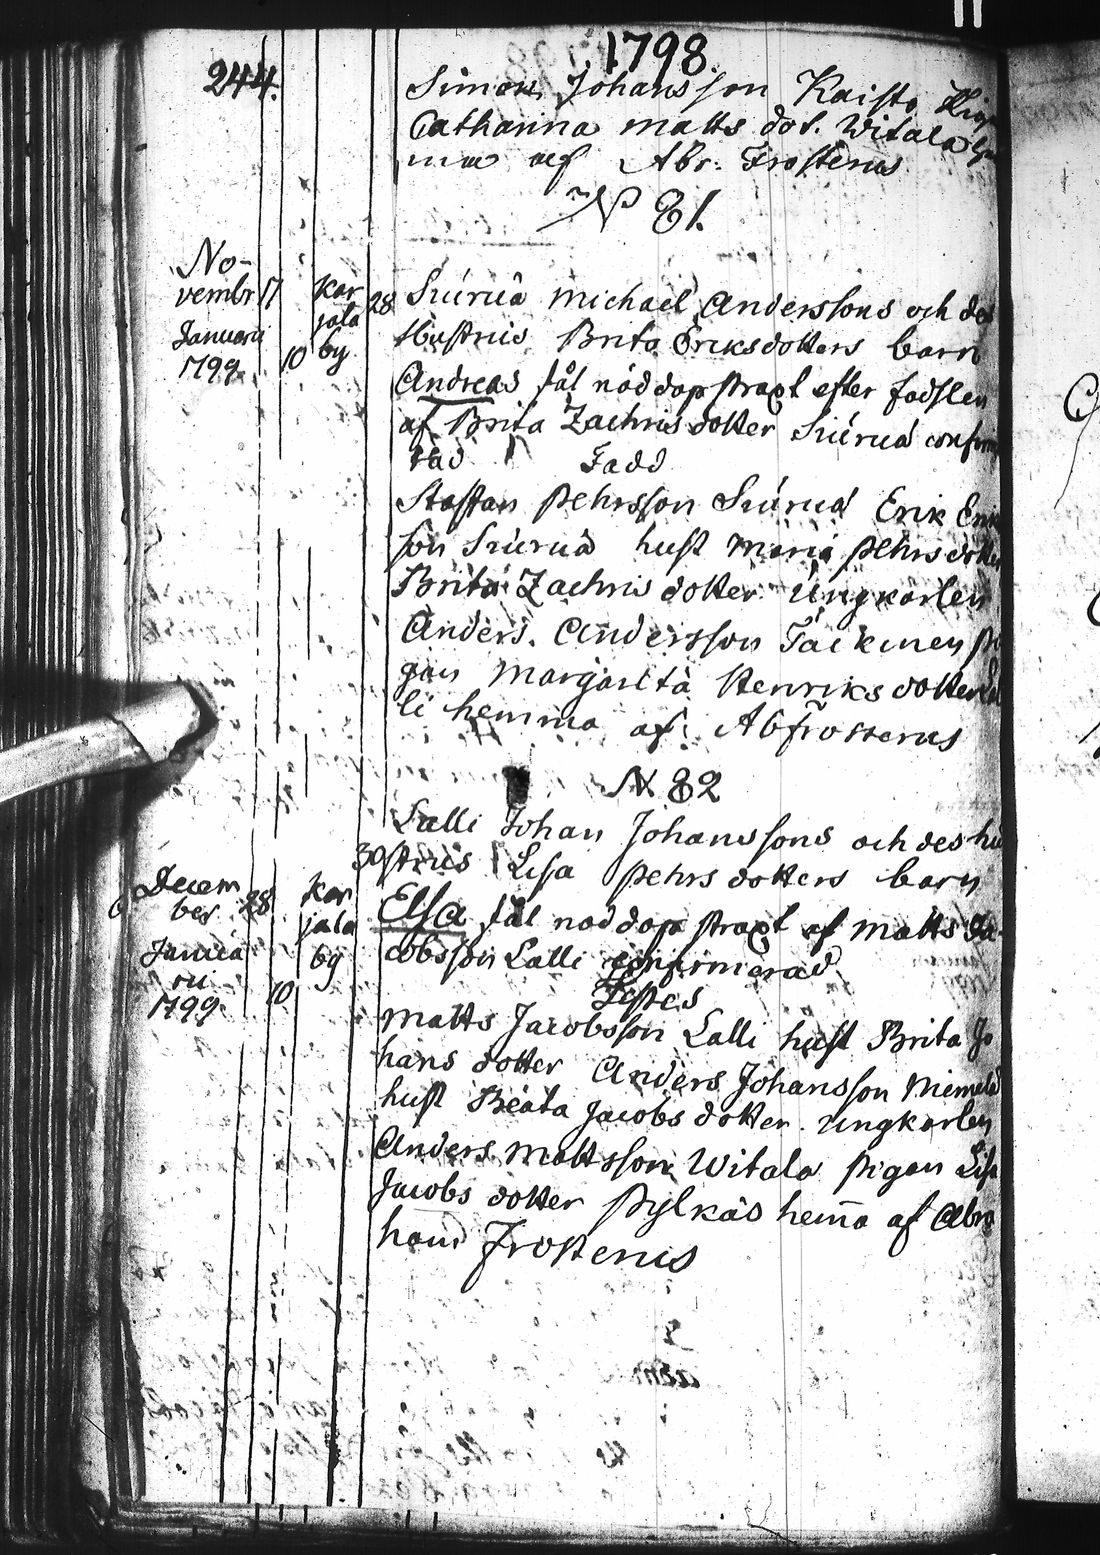 1798.
244.
Simon Johansson Kaisto
Catharina Matts dot. Witala
ma af Abr. Frosterus
N 81.
No-
vembr 17
Januarii
1799. 10
Kar
jala
by
28 Siuruá Michael Anderssons och des
Hustrus Brita Eriksdotters barn
Andreas fåt nöddop straxt efter fodslen
af Brita Zachrisdotter Siuruá confirm
rad Fadd
Staffan Pehrsson Siuruá Erik Erik
son Siuruá hust Maria Pehrsdotter
Brita Zachrisdotter Ungkarlen
Anders Andersson Packinen pi
gan Margareta Henriksdotter La
li hemma af Ab frosterus
N 82
Lalli Johan Johanssons och des hu
30 strus Lisa Pehrsdotters barn
Elsa fåt noddop straxt af Matts Ja-
cobsson Lalli confirmerad
Testes
Decem
ber 28
Janua
rii
1799. 10
Kar
jala
by
Matts Jacobsson Lalli hust Brita Jo
hans dotter Anders Johansson Niemelä
hust Beata Jacobs dotter. Ungkarlen
Anders Mattsson Witala Pigan Lisa
Jacobs dotter Pylkäs hem̃a af Abra
ham Frosterus